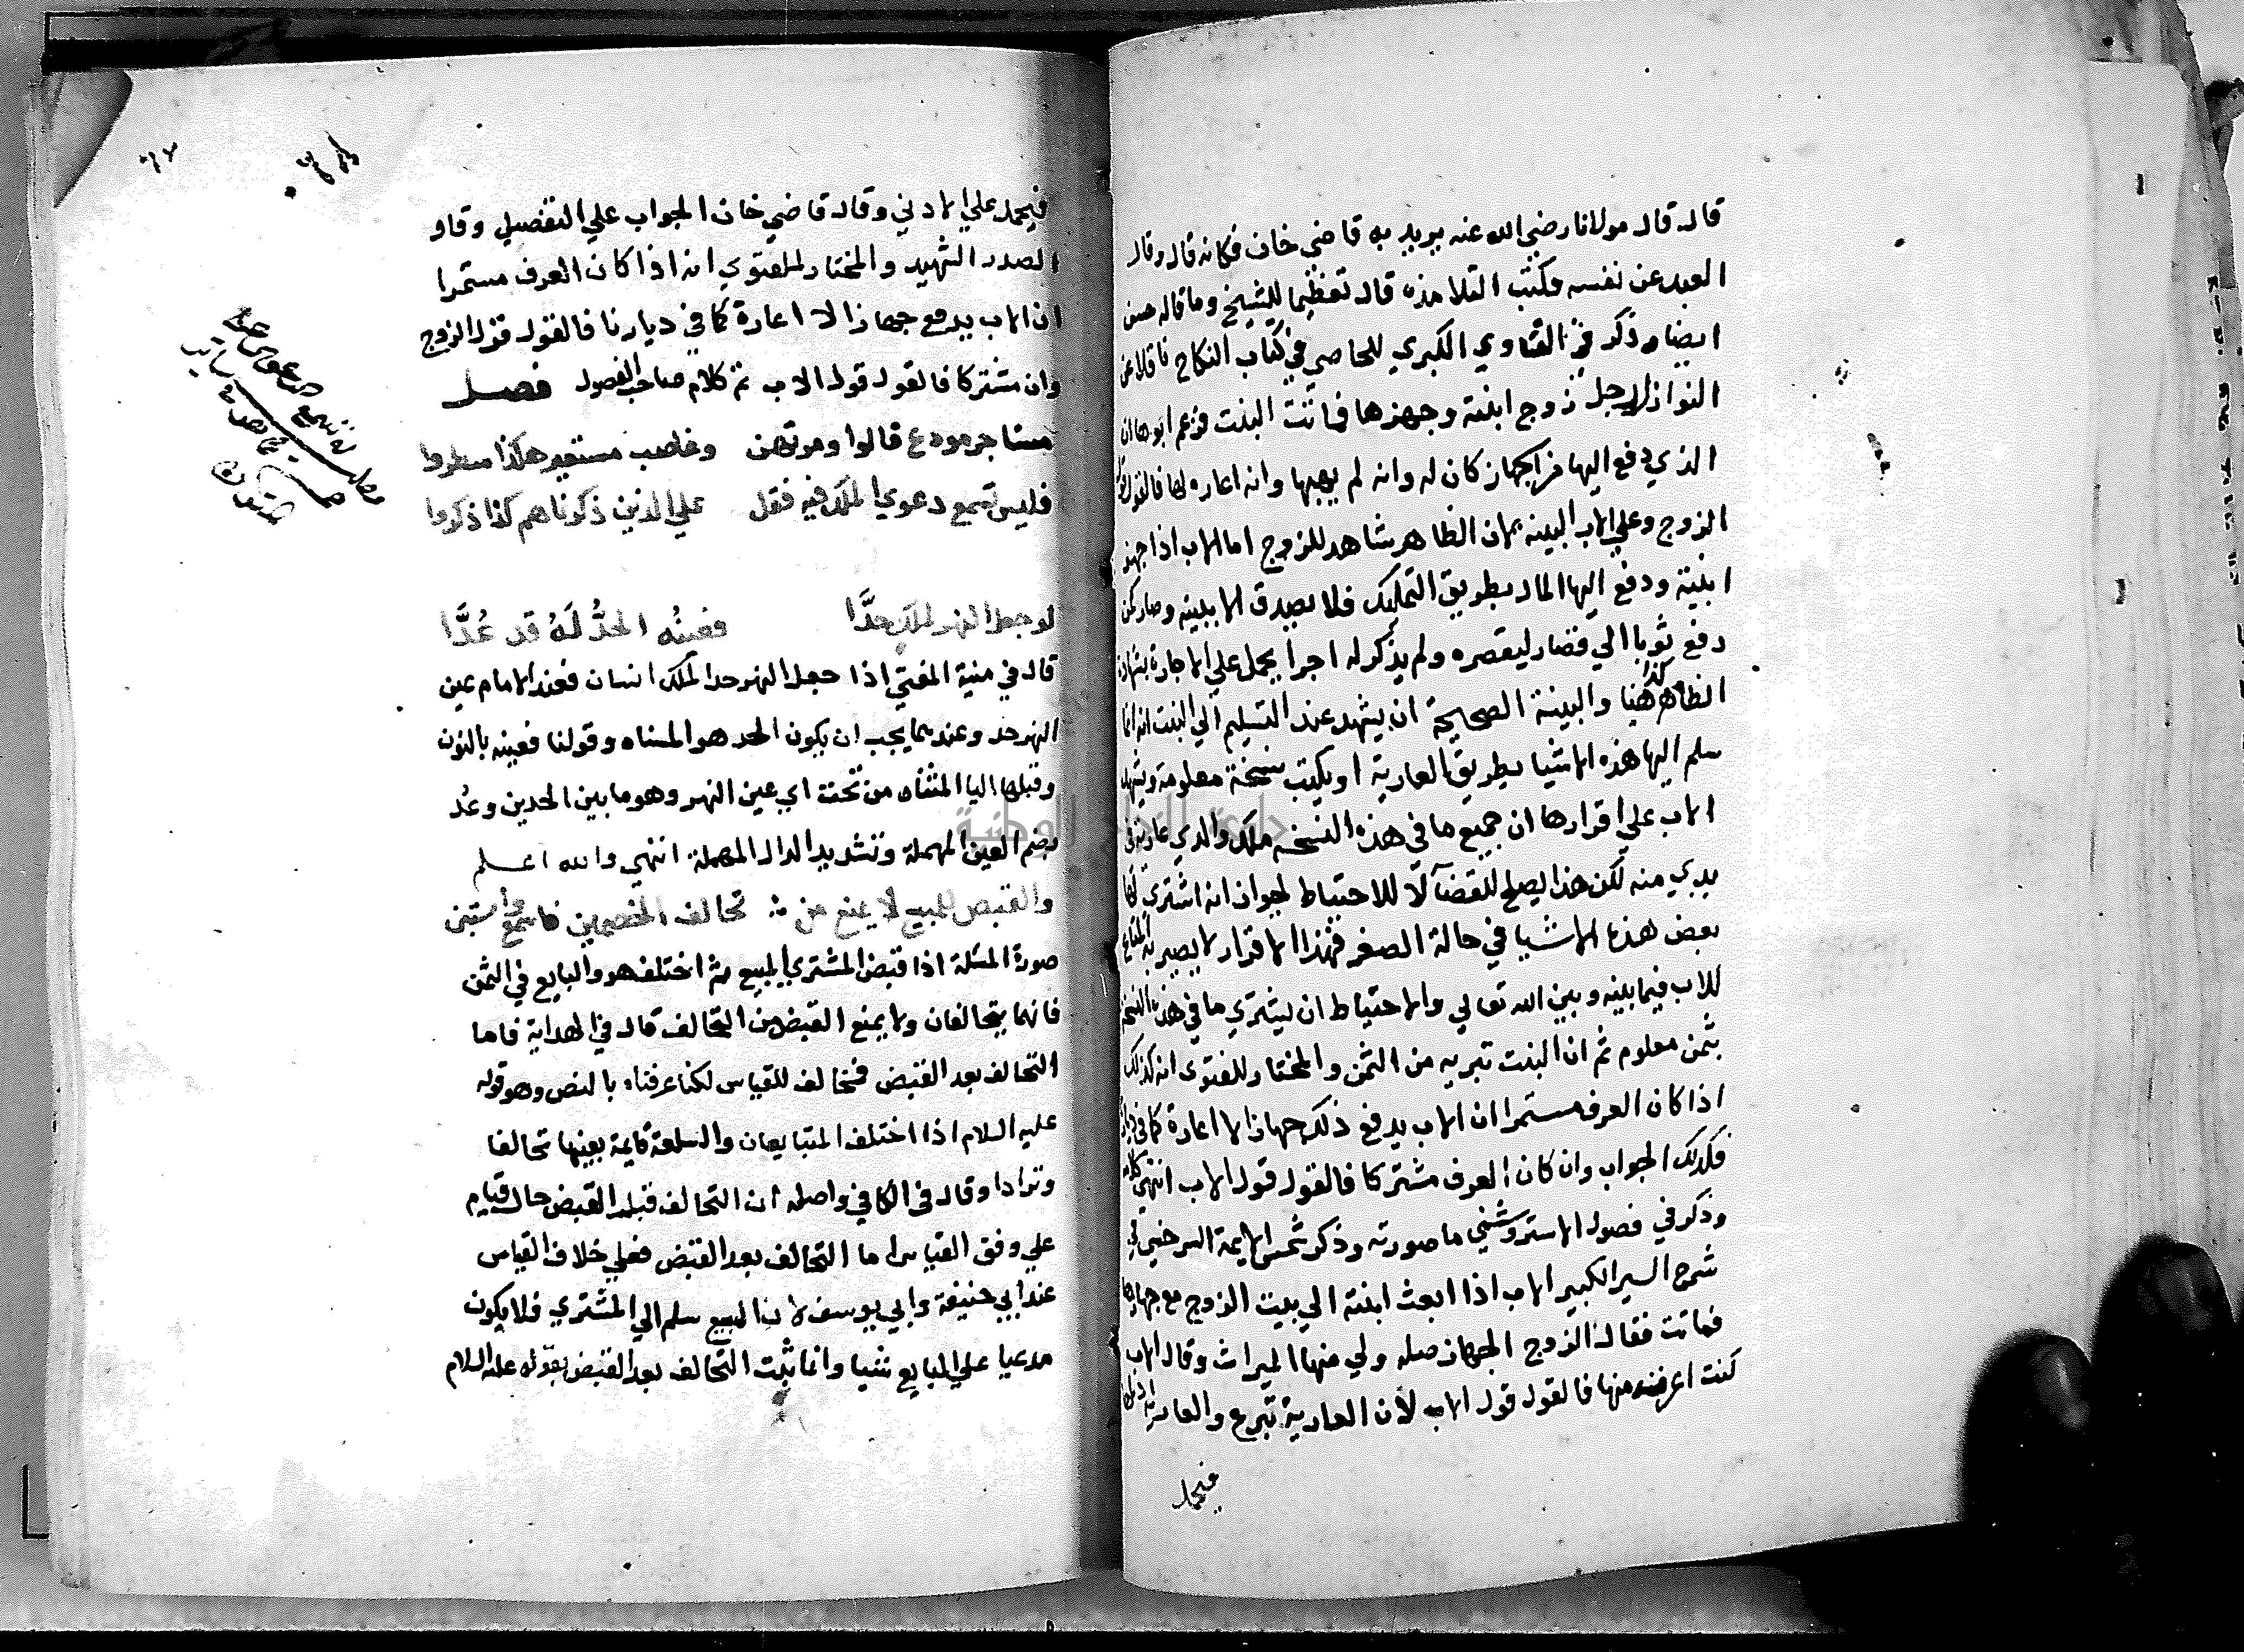 قال قال مولانا رضي الله عنه يريد به قاضي خان فكانه قال وقال
العبد عن نفسه فكتب التلامذه قال تعظيما للشيخ وما قاله حسن
ايضا وذكر في الفتاوي الكبري للخاصي في كتاب النكاح ناقلا عن
النوازل رجل زوج ابنته وجهزها فماتت البنت فزعم ابوها ان
الذي دفع اليها من الجهاز كان له وانه لم يهبها وانه اعاره لها فالقول قول
الزوج وعلي الاب البينه لان الظاهر شاهد للزوج اما الاب اذا جهز
ابنته ودفع اليها المال بطريق التمليك فلا يصدق الا ببينه وصار كمن
دفع ثوبا الي قصار ليقصره ولم يذكر له اجرا يحمل علي الاجارة بشهادة
الظاهر كذا هنا والبينة الصحيحة ان يشهد عند التسليم الي البنت انه انما
سلم اليها هذه الاشيا بطريق العارية او يكتب نسخة معلومة ويشهد
الاب علي اقرارها ان جميع ما في هذه النسخه ملك والدي عارية في
يدي منه لكن هذا يصلح للقضآ لا للاحتياط لجواز انه اشتري لها
بعض هذه الاشيا في حالة الصغر فهذا الاقرار لا يصير به المتاع
للاب فيما بينه وبين الله تعالي والاحتياط ان يشتري ما في هذه النسخة
بثمن معلوم ثم ان البنت تبريه من الثمن والمختار للفتوى انه كذلك
اذا كان العرف مستمرا ان الاب يدفع ذلك جهازا لا اعارة كما في ديارنا
فكذلك الجواب وان كان العرف مشتركا فالقول قول الاب انتهى كلامه
وذكر في فصول الاستروشني ما صورته وذكر شمس الايمة السرخسي في
شرح السير الكبير الاب اذا بعث ابنته الي بيت الزوج مع جهازها
فماتت فقال الزوج الجهاز صله ولي منها الميراث وقال الاب
كنت اعرضه منها فالقول قول الاب لأن العارية تبرع والعارية ادناه
فيحمل
فيحمل علي الادني وقال قاضي خان الجواب علي التفصيل وقال
الصدر الشهيد والمختار للفتوي انه اذا كان العرف مستمرا
ان الاب يدفع جهازا لا اعارة كما في ديارنا فالقول قول الزوج
وان مشتركا فالقول قول الاب تم كلام صاحب الفصول فصل
مستاجر مودع قالوا ومرتهن وغاصب مستعير هكذا سطروا
فليس تسمع دعوي الملك فيه فقل علي الذين ذكرناهم كذا ذكروا
لو جعل النهر لملك حدَّا فعينُه الحدُّ لَهُ قد عُدَّا
قال في منية المفتي اذا جعل النهر حدا لملك انسان فعند الامام عين
النهر حد وعندهما يجب ان يكون الحد هو المسناه وقولنا فعينه بالنون
وقبلها اليا المثناه من تحت اي عين النهر وهو ما بين الحدين وعُد
بضم العين المهملة وتشديد الدال المهملة انتهي والله اعلم
والقبض للمبيع لا يمنع من تحالف الخصمين فاسمع واستبن
صورة المسئلة اذا قبض المشتري المبيع ثم اختلف هو والبايع في الثمن
فانهما يتحالفان ولا يمنع القبض من التحالف قال في الهداية فاما
التحالف بعد القبض فمخالف للقياس لكنا عرفناه بالنص وهو قوله
عليه السلام اذا اختلف المتبايعان والسلعة قايمة بعينها تحالفا
وترادا وقال في الكافي واصله ان التحالف قبل القبض حال قيام
علي وفق القياس اما التحالف بعد القبض فعلي خلاف القياس
عند ابي حنيفة وابي يوسف لان المبيع سلم الي المشتري فلا يكون
مدعيا علي البايع شيا وانما يثبت التحالف بعد القبض بقوله عليه السلام